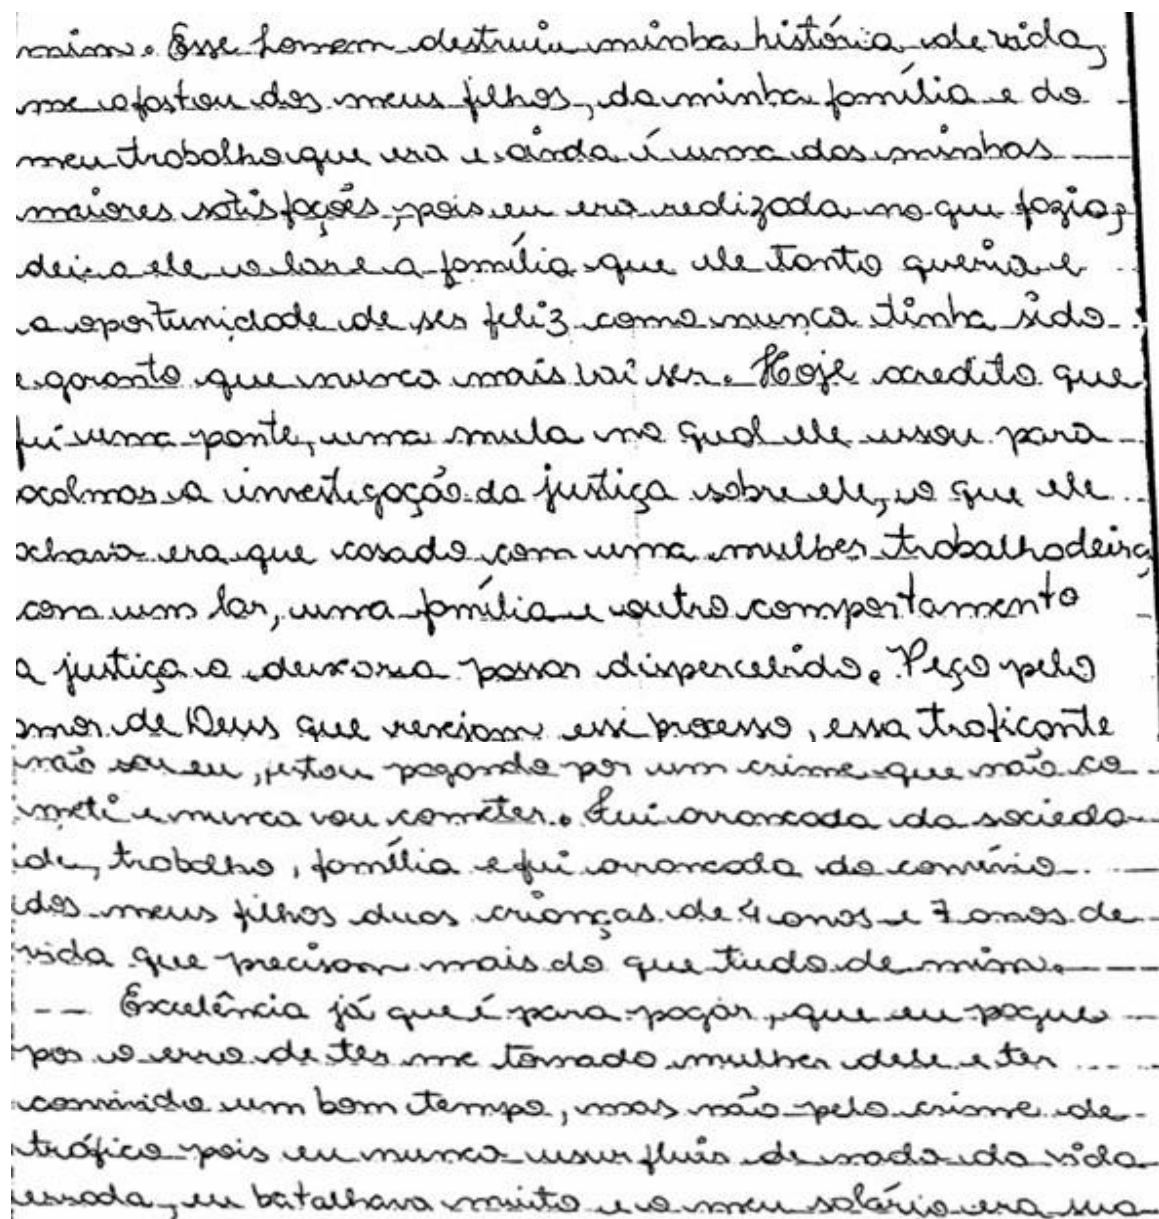 mim. Esse homem destruiu minha história de vida,
me afastou dos meus filhos, da minha família e do
meu trabalho que era e ainda é uma das minhas
maiores satisfações, pois eu era realizada no que fazia,
dei a ele o lar e a família que ele tanto queria e
a oportunidade de ser feliz como nunca tinha sido
e garanto que nunca mais vai ser. Hoje acredito que
fui uma ponte, uma mula no qual ele usou para
acalmar a investigação da justiça sobre ele, o que ele
achava era que casado com uma mulher trabalhadeira
com um lar, uma família e outro comportamento
a justiça o deixaria passar dispercebido. Peço pelo
amor de Deus que revejam esse processo, essa traficante
não sou eu, estou pagando por um crime que não co
meti e nunca vou cometer. Fui arrancada da socieda
de, trabalho, família e fui arrancada do convívio
dos meus filhos duas crianças de 4 anos e 7 anos de
vida que precisam mais do que tudo de mim.
Excelência já que é para pagar, que eu pague
por o erro de ter me tornado mulher dele e ter
convivido um bom tempo, mas não pelo crime de
tráfico pois eu nunca usurfluis de nada da vida
errada, eu batalhava muito e o meu salário era sua